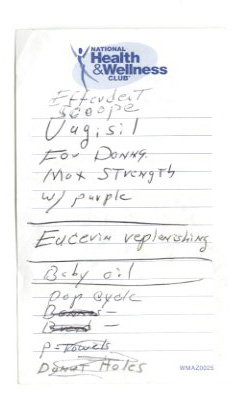 NATIONAL
Health
&Wellness
CLUB
Effordent
Scope
Vagisil
For Donny.
Max Strength
w/ purple
Eucerin replenishing
Baby oil
Pop cycle
Bread –
P-Towels
Donut Holes
WMAZ0025